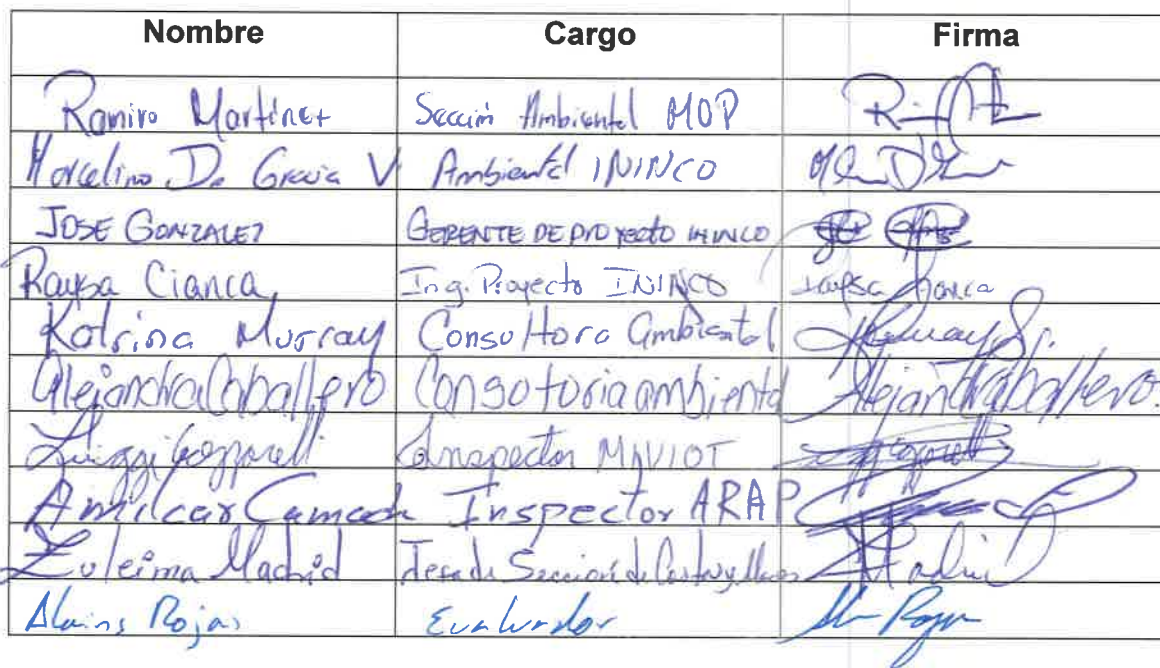 Nombre Cargo Firma
Ramiro Martínez Sección Ambiental MOP
Marcelino De Gracia V Ambiental ININCO
JOSE GONZALEZ GERENTE DE PROYECTO ININCO
Raysa Cianca Ing. Proyecto ININCO Raysa Cianca
Katrina Murray Consultora Ambiental KMurray S.
Alejandra Caballero Consultoria ambiental Alejandra Caballero.
Luiggi Inspector MIVIOT
Amilcar Camach Inspector ARAP
Zuleima Madrid Jefa de Sección de Costas y Mares ZMadrid
Alains Rojas Evaluador